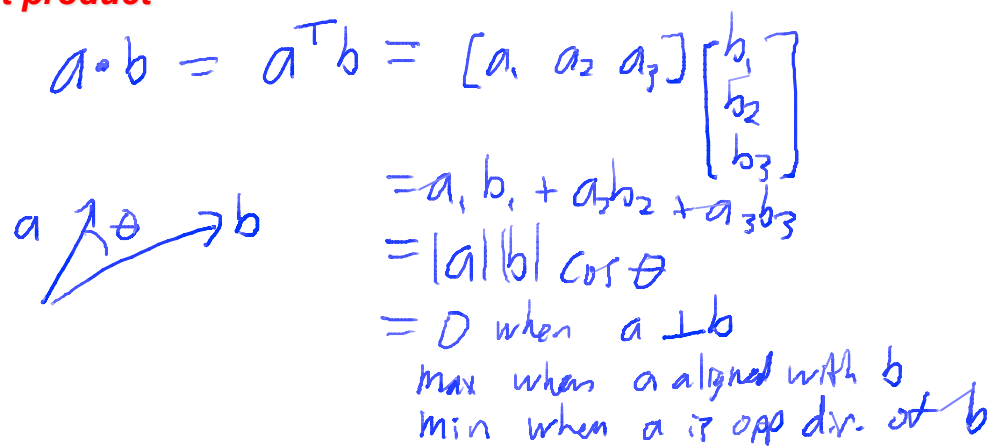 t product
a · b = aᵀb = [a₁ a₂ a₃] [b₁ b₂ b₃]
= a₁b₁ + a₂b₂ + a₃b₃
a θ b
= |a||b| cos θ
= 0 when a ⊥ b
max when a aligned with b
min when a is opp dir. of b